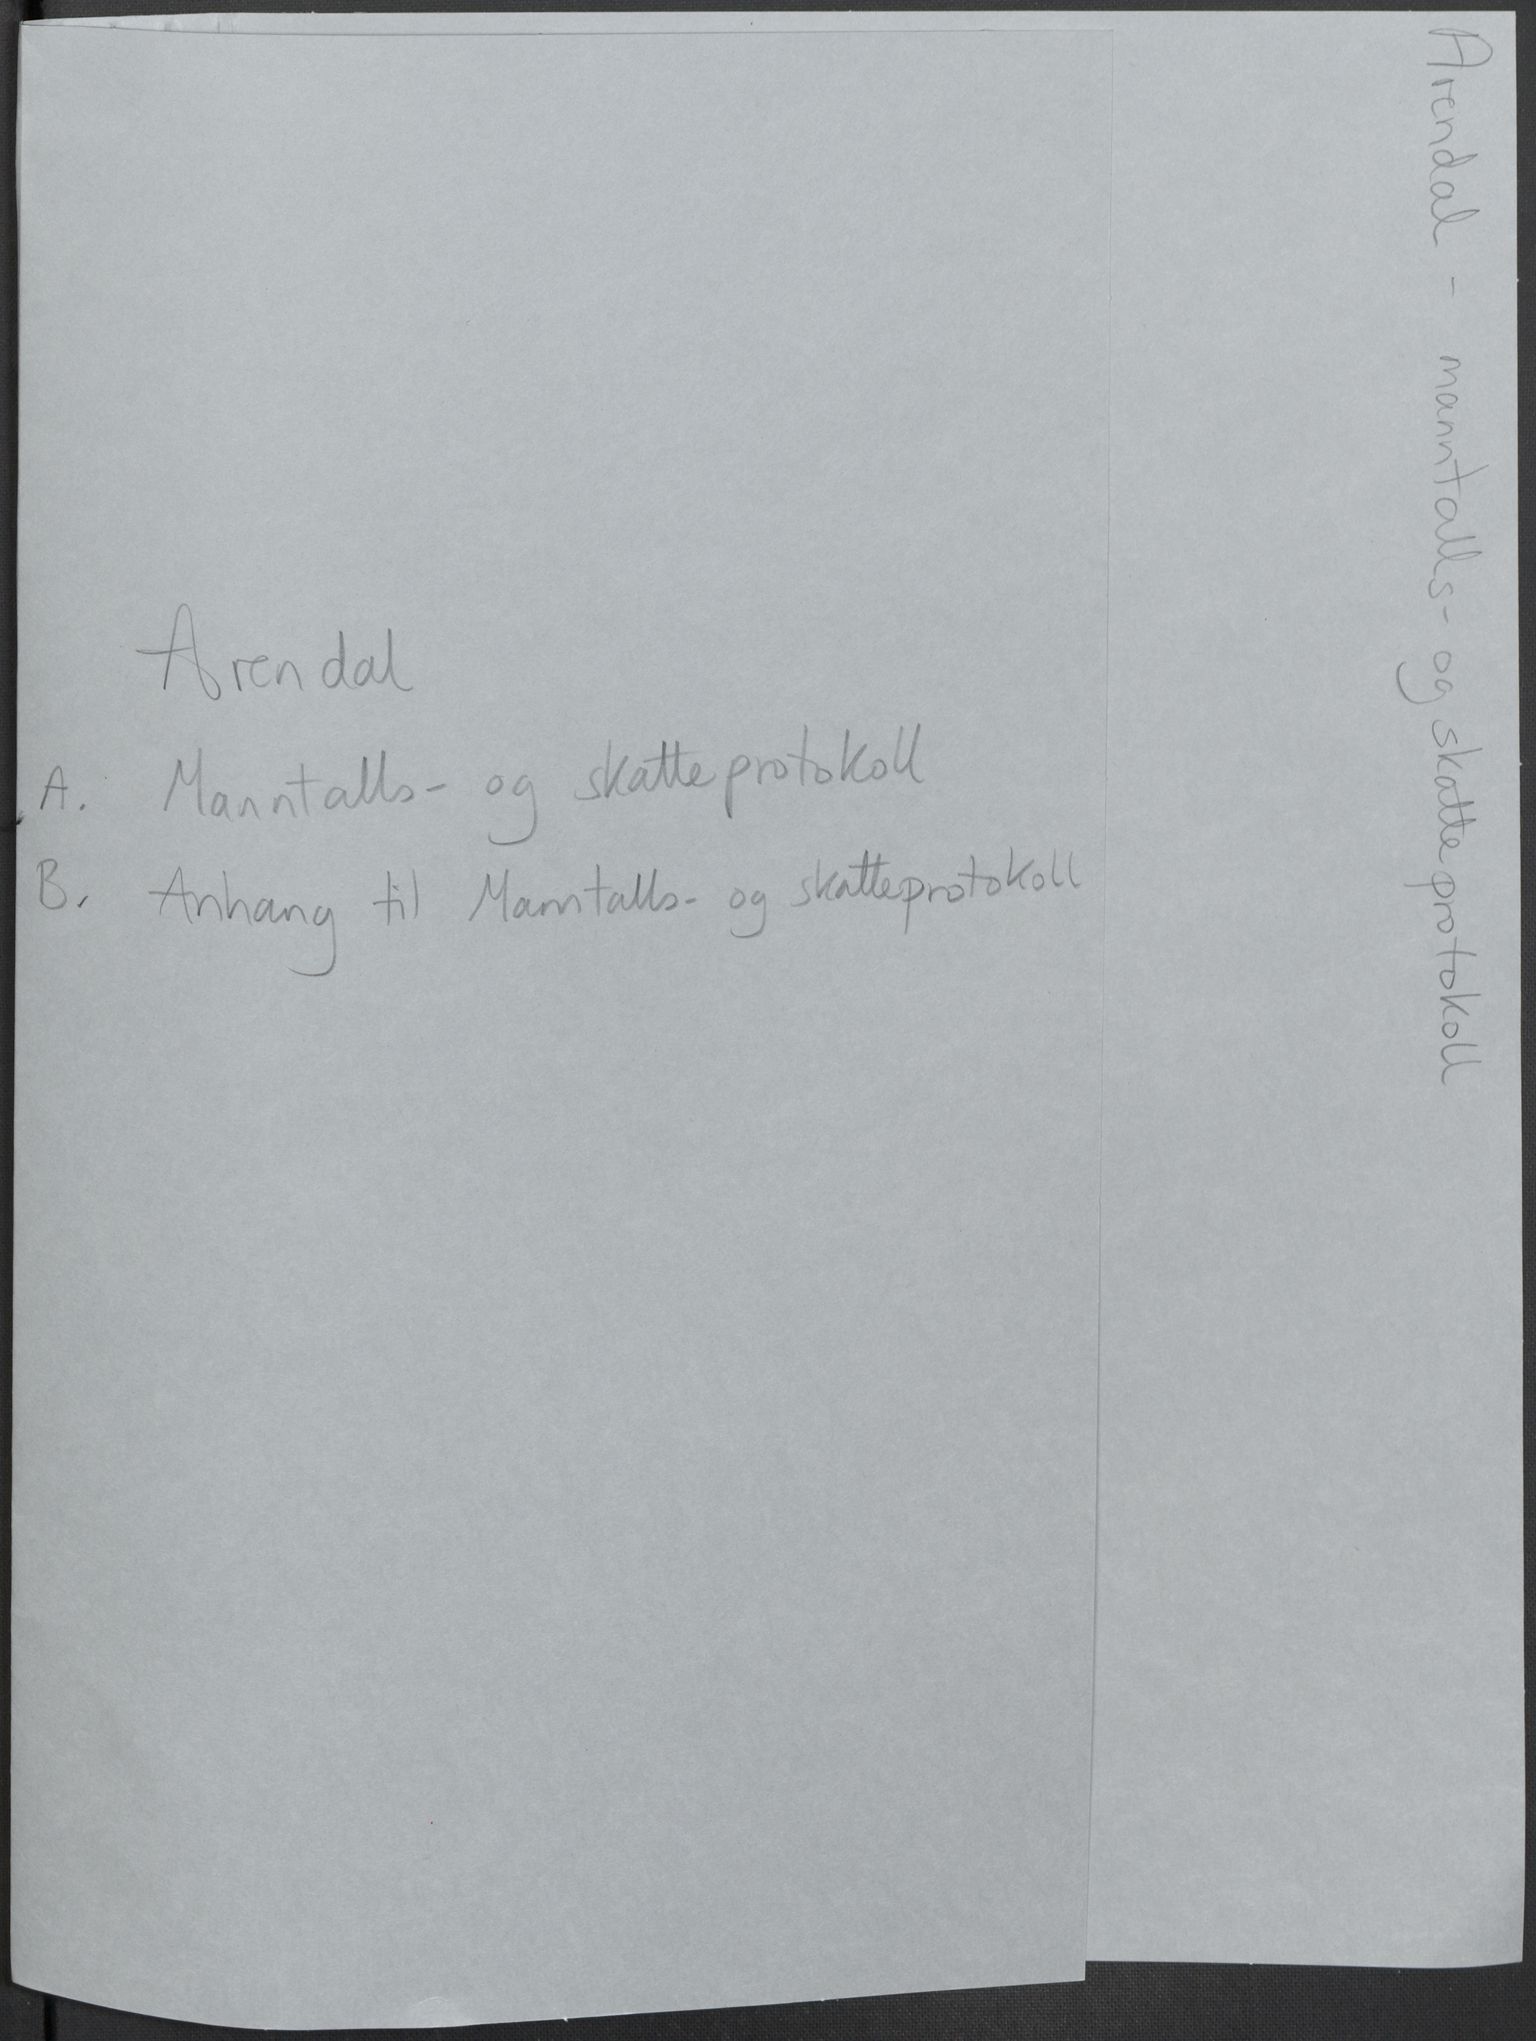 Arendal
A. Manntalls- og skatteprotokoll
B. Anhang til Manntalls- og skatteprotokoll
Arendal - manntalls- og skatteprotokoll